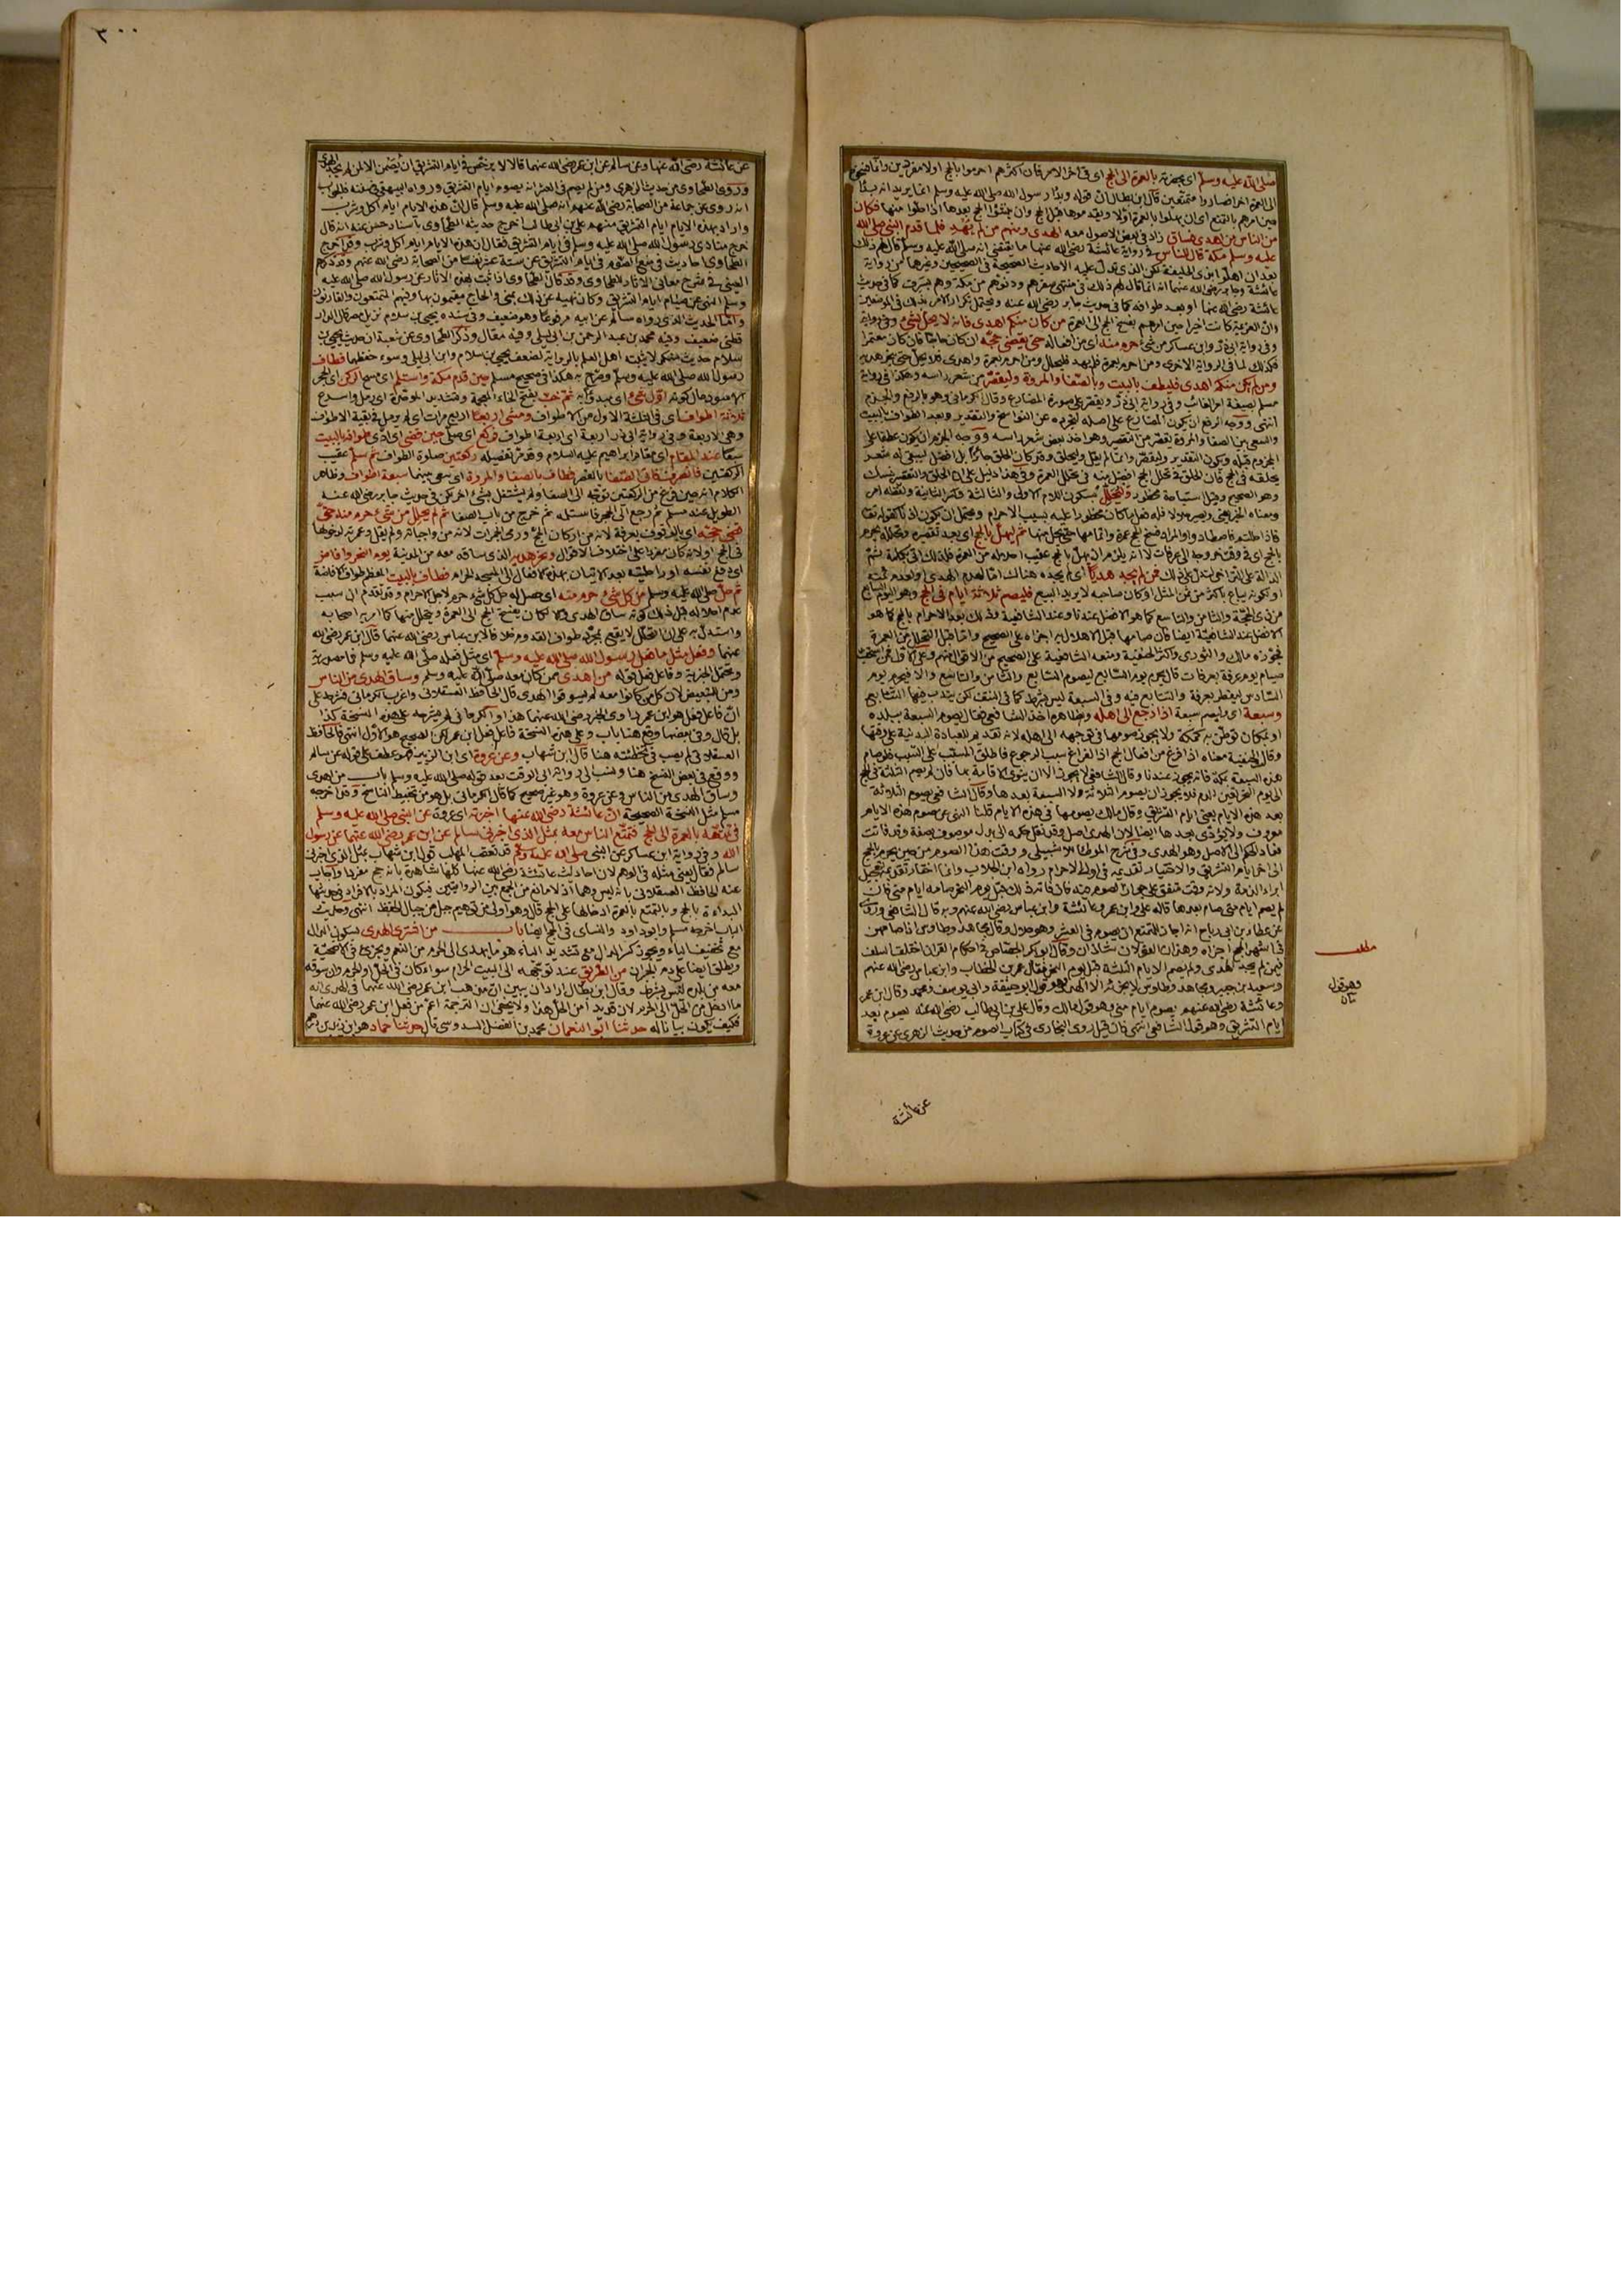 صلى الله عليه وسلم اى بحجته بالعمرة الى الحج اى فى اخر الامر فان اكثرهم احرموا بالحج اولا مفردين وانما فسخوا
الى العمرة اخرا فصاروا متمتعين قال ابن بطال ان قوله وبدأ رسول الله صلى الله عليه وسلم انما يريد انه بدأ
حين امرهم بالتمتع اى ان يهلوا بالعمرة اولا ويقدموها قبل الحج وان ينشؤا الحج بعدها اذا حلوا منها فكان
من الناس من اهدى فساق زاد فى بعض الاصول معه الهدى ومنهم من لم يهد فلما قدم النبى صلى الله
عليه وسلم مكة قال للناس فى رواية عائشة رضى الله عنها ما يقتضى انه صلى الله عليه وسلم قال لهم ذلك
بعد ان اهلوا بذى الحليفة لكن الذى يدل عليه الاحاديث الصحيحة فى الصحيحين وغيرهما من رواية
عائشة وجابر رضى الله عنهما انه انما قال لهم ذلك فى منتهى سفرهم ودنوهم من مكة وهم بسرف كما فى حديث
عائشة رضى الله عنها او بعد طوافه كما فى حديث جابر رضى الله عنه ويحتمل تكرار الامر بذلك فى الموضعين
وان العزيمة كانت اخيرا حين امرهم بفسخ الحج الى العمرة من كان منكم اهدى فانه لا يحل لشىء وفى رواية
وفى رواية ابى ذر وابن عساكر من شىء حرم منه اى من افعاله حتى يقضى حجه ان كان حاجا فان كان معتمرا
فكذلك لما فى الرواية الاخرى ومن احرم بعمرة فلم يهد فليحلل ومن احرم بعمرة واهدى فلا يحل حتى ينحر هديه
ومن لم يكن منكم اهدى فليطف بالبيت وبالصفا والمروة وليقصر من شعر راسه وهكذا فى رواية
مسلم بصيغة امر الغائب وفى رواية ابى ذر ويقصر على صورة المضارع وقال الكرمانى وهو بالرفع والجزم
انتهى ووجه الرفع ان يكون المضارع على اصله لتجرده عن النواسخ والتقدير وبعد الطواف بالبيت
والسعى بين الصفا والمروة يقصر من التقصير وهو اخذ بعض شعر راسه ووجه الجزم ان يكون عطفا على
المجزوم قبله ويكون التقدير وليقصر وانما لم يقل وليحلق وقد كان الحلق جائزا بل افضل ليبقى له شعر
يحلقه فى الحج فان الحلق فى تحلل الحج افضل منه فى تحلل العمرة وفى هذا دليل على ان الحلق والتقصير نسك
وهو الصحيح وقيل استباحة محظور وليحلل بسكون اللام الاولى والثالثة وكسر الثانية ولفظه امر
ومعناه الخبر يعنى وبصير حلالا فله فعل ما كان محظورا عليه بسبب الاحرام ويحتمل ان يكون اذنا كقوله تعالى
فاذا حللتم فاصطادوا والمراد فسخ الحج عمرة واتمامها حتى يحل منها ثم ليهل بالحج اى بعد تقصيره وتحلله يحرم
بالحج اى فى وقت خروجه الى عرفات لا انه يلزم ان يهل بالحج عقيب احلاله من العمرة فلذلك اتى بكلمة ثم
الدالة على التراخى فمن لم يجد هديا اى لم يجده هناك اما لعدم الهدى او لعدم ثمنه
او لكونه يباع باكثر من ثمن المثل او كان صاحبه لا يريد البيع فليصم ثلاثة ايام فى الحج وهو اليوم السابع
من ذى الحجة والثامن والتاسع كما هو الافضل عندنا وعند الشافعية وذلك بعد الاحرام بالحج كما هو
الافضل عند الشافعية ايضا فان صامها قبل الاهلال به اجزاه على الصحيح واما قبل التحلل من العمرة
فجوزه مالك والثورى واكثر الحنفية ومنعه الشافعية على الصحيح من الاقوال عنهم وعلى الاول فمن استحب
صيام يوم عرفة بعرفات قال يحرم يوم السابع ليصوم السابع والثامن والتاسع والا فيحرم يوم
السادس ليفطر بعرفة والتتابع فيه وفى السبعة ليس بشرط كما فى المتفق لكن يندب فيها التتابع
وسبعة اى وليصم سبعة اذا رجع الى اهله وبظاهره اخذ الشافعى فقال يصوم السبعة ببلده
او بمكان توطن به كمكة ولا يجوز صومها فى توجهه الى اهله لانه تقديم للعبادة البدنية على وقتها
وقال الحنفية معناه اذا فرغ من افعال الحج اذ الفراغ سبب الرجوع فاطلق المسبب على السبب فلو صام
هذه السبعة بمكة فانه يجوز عندنا وقال الشافعى لا يجوز الا ان ينوى الاقامة بها فان لم يصم الثلثة فى الحج
الى يوم النحر تعين الدم فلا يجوز ان يصوم الثلاثة ولا السبعة بعدها وقال الشافعى يصوم الثلاثة
بعد هذه الايام يعنى ايام التشريق وقال مالك يصومها فى هذه الايام قلنا النهى عن صوم هذه الايام
معروف ولا يؤدى بعدها ايضا لان الهدى اصل وقد نقل حكمه الى بدل موصوف بصفة وقد فاتت
فعاد الحكم الى الاصل وهو الهدى وفى شرح الموطا للاشبيلى ووقت هذا الصوم من حين يحرم بالحج
الى اخر ايام التشريق والاختيار تقديمه فى اول الاحرام رواه ابن الجلاب وانما اختار تقديمه لتعجيل
ابراء الذمة ولانه وقت متفق على جواز الصوم فيه فان فاته ذلك قبل يوم النحر صامه ايام منى فان
لم يصم ايام منى صام بعدها قاله على وابن عمر وعائشة وابن عباس رضى الله عنهم وبه قال الشافعى وروى
عن عطاء بن ابى رباح انه اجاز للتمتع ان يصوم فى العشر وهو حلال وقال مجاهد وطاوس اذا صامهن
فى اشهر الحج اجزاه وهذان القولان شاذان وقال ابو بكر الجصاص فى احكام القران اختلف السلف
فيمن لم يجد الهدى ولم يصم الايام الثلثة قبل يوم النحر فقال عمر بن الخطاب وابن عباس رضى الله عنهم
وسعيد بن جبير ومجاهد وطاوس لا يجزئه الا الهدى وهو قول ابو حنيفة وابى يوسف ومحمد وقال ابن عمر
وعائشة رضى الله عنهم يصوم ايام منى وهو قول مالك وقال على بن ابى طالب رضى الله عنه يصوم بعد
ايام التشريق وهو قول الشافعى انتهى فان قيل روى البخارى فى كتاب الصوم من حديث الزهرى عن عروة
مطلب
عن عائشة
٢٠٠
عن عائشة رضى الله عنها وعن سالم عن ابن عمر رضى الله عنهما قالا لا يرخص فى ايام التشريق ان يصمن الا لمن لم يجد الهدى
وروى الطحاوى من حديث الزهرى ومن لم يصم فى العشر انه يصوم ايام التشريق ورواه البيهقى فى سننه فالجواب
انه روى عن جماعة من الصحابة رضى الله عنهم انه صلى الله عليه وسلم قال ان هذه الايام ايام اكل وشرب
واراد بهذه الايام ايام التشريق منهم على بن ابى طالب اخرج حديثه الطحاوى باسناد حسن عنه انه قال
خرج منادى رسول الله صلى الله عليه وسلم فى ايام التشريق فقال ان هذه الايام ايام اكل وشرب وقد اخرج
الطحاوى احاديث فى منع الصوم فى ايام التشريق عن ستة عشر نفسا من الصحابة رضى الله عنهم وقد ذكرهم
العينى فى شرح معانى الاثار للطحاوى وقد قال الطحاوى اذا ثبت بهذه الاثار عن رسول الله صلى الله عليه
وسلم النهى عن صيام ايام التشريق وكان نهيه عن ذلك بمنى والحاج مقيمون بها وفيهم المتمتعون والقارنون
واما الحديث الذى رواه سالم عن ابيه مرفوعا وهو ضعيف وفى سنده يحيى بن سلام نزيل مصر قال الدار
قطنى ضعيف وفيه محمد بن عبد الرحمن بن ابى ليلى وفيه مقال وذكر الطحاوى عن شعبة ان حديث يحيى بن
سلام حديث منكر لا يثبته اهل العلم بالرواية لضعف يحيى بن سلام وابن ابى ليلى وسوء حفظهما فطاف
رسول الله صلى الله عليه وسلم وصرح به هكذا فى صحيح مسلم حين قدم مكة واستلم اى مسح الركن اى الحجر
الاسود حال كونه اول شىء اى مبدوا به ثم خب بفتح الخاء المعجمة وبتشديد الموحدة اى رمل واسرع
ثلاثة اطواف اى فى الثلثة الاول من الاطواف ومشى اربعا اربع مرات اى لم يرمل فى بقية الاطواف
وهى الاربعة وفى رواية ابى ذر اربعة اى اربعة اطواف فركع اى صلى حين قضى اى ادى طوافه بالبيت
سبعا عند المقام اى مقام ابراهيم عليه السلام وقد مر تفصيله ركعتين صلوة الطواف ثم سلم عقيب
الركعتين فانصرف فاتى الصفا بالقصر فطاف بالصفا والمروة اى سعى بينهما سبعة اطواف وظاهر
الكلام انه حين فرغ من الركعتين توجه الى الصفا ولم يشتغل بشىء اخر لكن فى حديث جابر رضى الله عنه
الطويل عند مسلم ثم رجع الى الحجر فاستلمه ثم خرج من باب الصفا ثم لم يحلل من شىء حرم منه حتى
قضى حجه اى بالوقوف بعرفة لانه من اركان الحج ورمى الجمرات لانه من واجباته ولم يقل وعمرته لدخولها
فى الحج او لانه كان مفردا على اختلاف الاقوال ونحر هديه الذى ساقه معه من المدينة يوم النحر وافاض
اى دفع نفسه او راحلته بعد الاتيان بهذه الافعال الى المسجد الحرام فطاف بالبيت المعظم طواف الافاضة
ثم حل صلى الله عليه وسلم من كل شىء حرم منه اى حصل له حل كل شىء حرم لاجل الاحرام وقد تقدم ان سبب
عدم احلاله قبل ذلك كونه ساق الهدى والا لكان يفسخ الحج الى العمرة ويتحلل منها كما امر به اصحابه
واستدل به على ان التحلل لا يقع بمجرد طواف القدوم خلافا لابن عباس رضى الله عنهما قال ابن عمر رضى الله
عنهما وفعل مثل ما فعل رسول الله صلى الله عليه وسلم اى مثل فعله صلى الله عليه وسلم فما مصدرية
ويحتمل الخبرية وفاعل فعل قوله من اهدى ممن كان معه صلى الله عليه وسلم وساق الهدى من الناس
ومن للتبعيض لان كل من كانوا معه لم يسوقوا الهدى قال الحافظ العسقلانى واغرب الكرمانى فشرحه على
ان فاعل فعل هو ابن عمر راوى الخبر رضى الله عنهما هذا والكرمانى لم يشرحه على هذه النسخة كذا
بل قال وفى بعضها وقع هنا باب وعلى هذه النسخة فاعل فعل ابن عمر لكن الصحيح هو الاول انتهى فالحافظ
العسقلانى لم يصب فى تخطئته هنا قال ابن شهاب وعن عروة اى ابن الزبير فهو عطف على قوله عن سالم
ووقع فى بعض النسخ هنا ونسب الى رواية ابى الوقت بعد قوله صلى الله عليه وسلم باب من اهدى
وساق الهدى من الناس وعن عروة وهو غير صحيح كما قال الكرمانى بل هو من تخبيط الناسخ وقد اخرجه
مسلم مثل النسخة الصحيحة ان عائشة رضى الله عنها اخبرته اى عروة عن النبى صلى الله عليه وسلم
فى تمتعه بالعمرة الى الحج فتمتع الناس معه بمثل الذى اخبرنى سالم عن ابن عمر رضى الله عنهما عن رسول
الله وفى رواية ابن عساكر عن النبى صلى الله عليه وسلم قد تعقب المهلب قول ابن شهاب بمثل الذى اخبرنى
سالم فقال يعنى مثله فى الوهم لان احاديث عائشة رضى الله عنها كلها شاهدة بانه حج مفردا واجاب
عنه الحافظ العسقلانى بانه ليس وهما اذ لا مانع من الجمع بين الروايتين فيكون المراد بالافراد فى حديثها
البداءة بالحج وبالتمتع بالعمرة ادخالها على الحج قال وهو اولى من توهيم جبل من جبال الحفظ انتهى وحديث
الباب اخرجه مسلم وابو داود والنساى فى الحج ايضا باب من اشترى الهدى بسكون الدال
مع تخفيف الياء ويجوز كسر الدال مع تشديد الياء هو ما يهدى الى الحرم من النعم ويجزئ فى الاضحية
ويطلق ايضا على دم الجبران من الطريق عند توجهه الى البيت الحرام سواء كان فى الحل او الحرم وان سوقه
معه من بلده ليس بشرط وقال ابن بطال اراد ان يبين ان مذهب ابن عمر رضى الله عنهما فى الهدى انه
ما ادخل من الحل الى الحرم لان قديد من الحل هذا ولا يخفى ان الترجمة اعم من فعل ابن عمر رضى الله عنهما
فكيف يكون بيانا له حدثنا ابو النعمان محمد بن الفضل السدوسى قال حدثنا حماد هو ابن زيد بن درهم